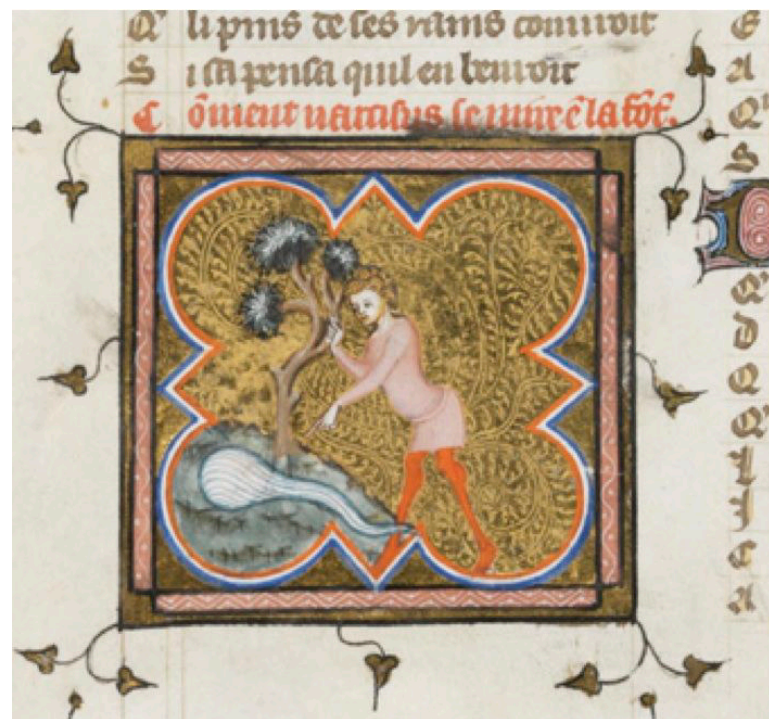 Q' li pins de ses rains couuroit
S i sa pensa quil en beuroit
C õment narcisus se mire ẽ la fõt.
E
A
Q'
S
Q'
D
Q
Q'
C
A